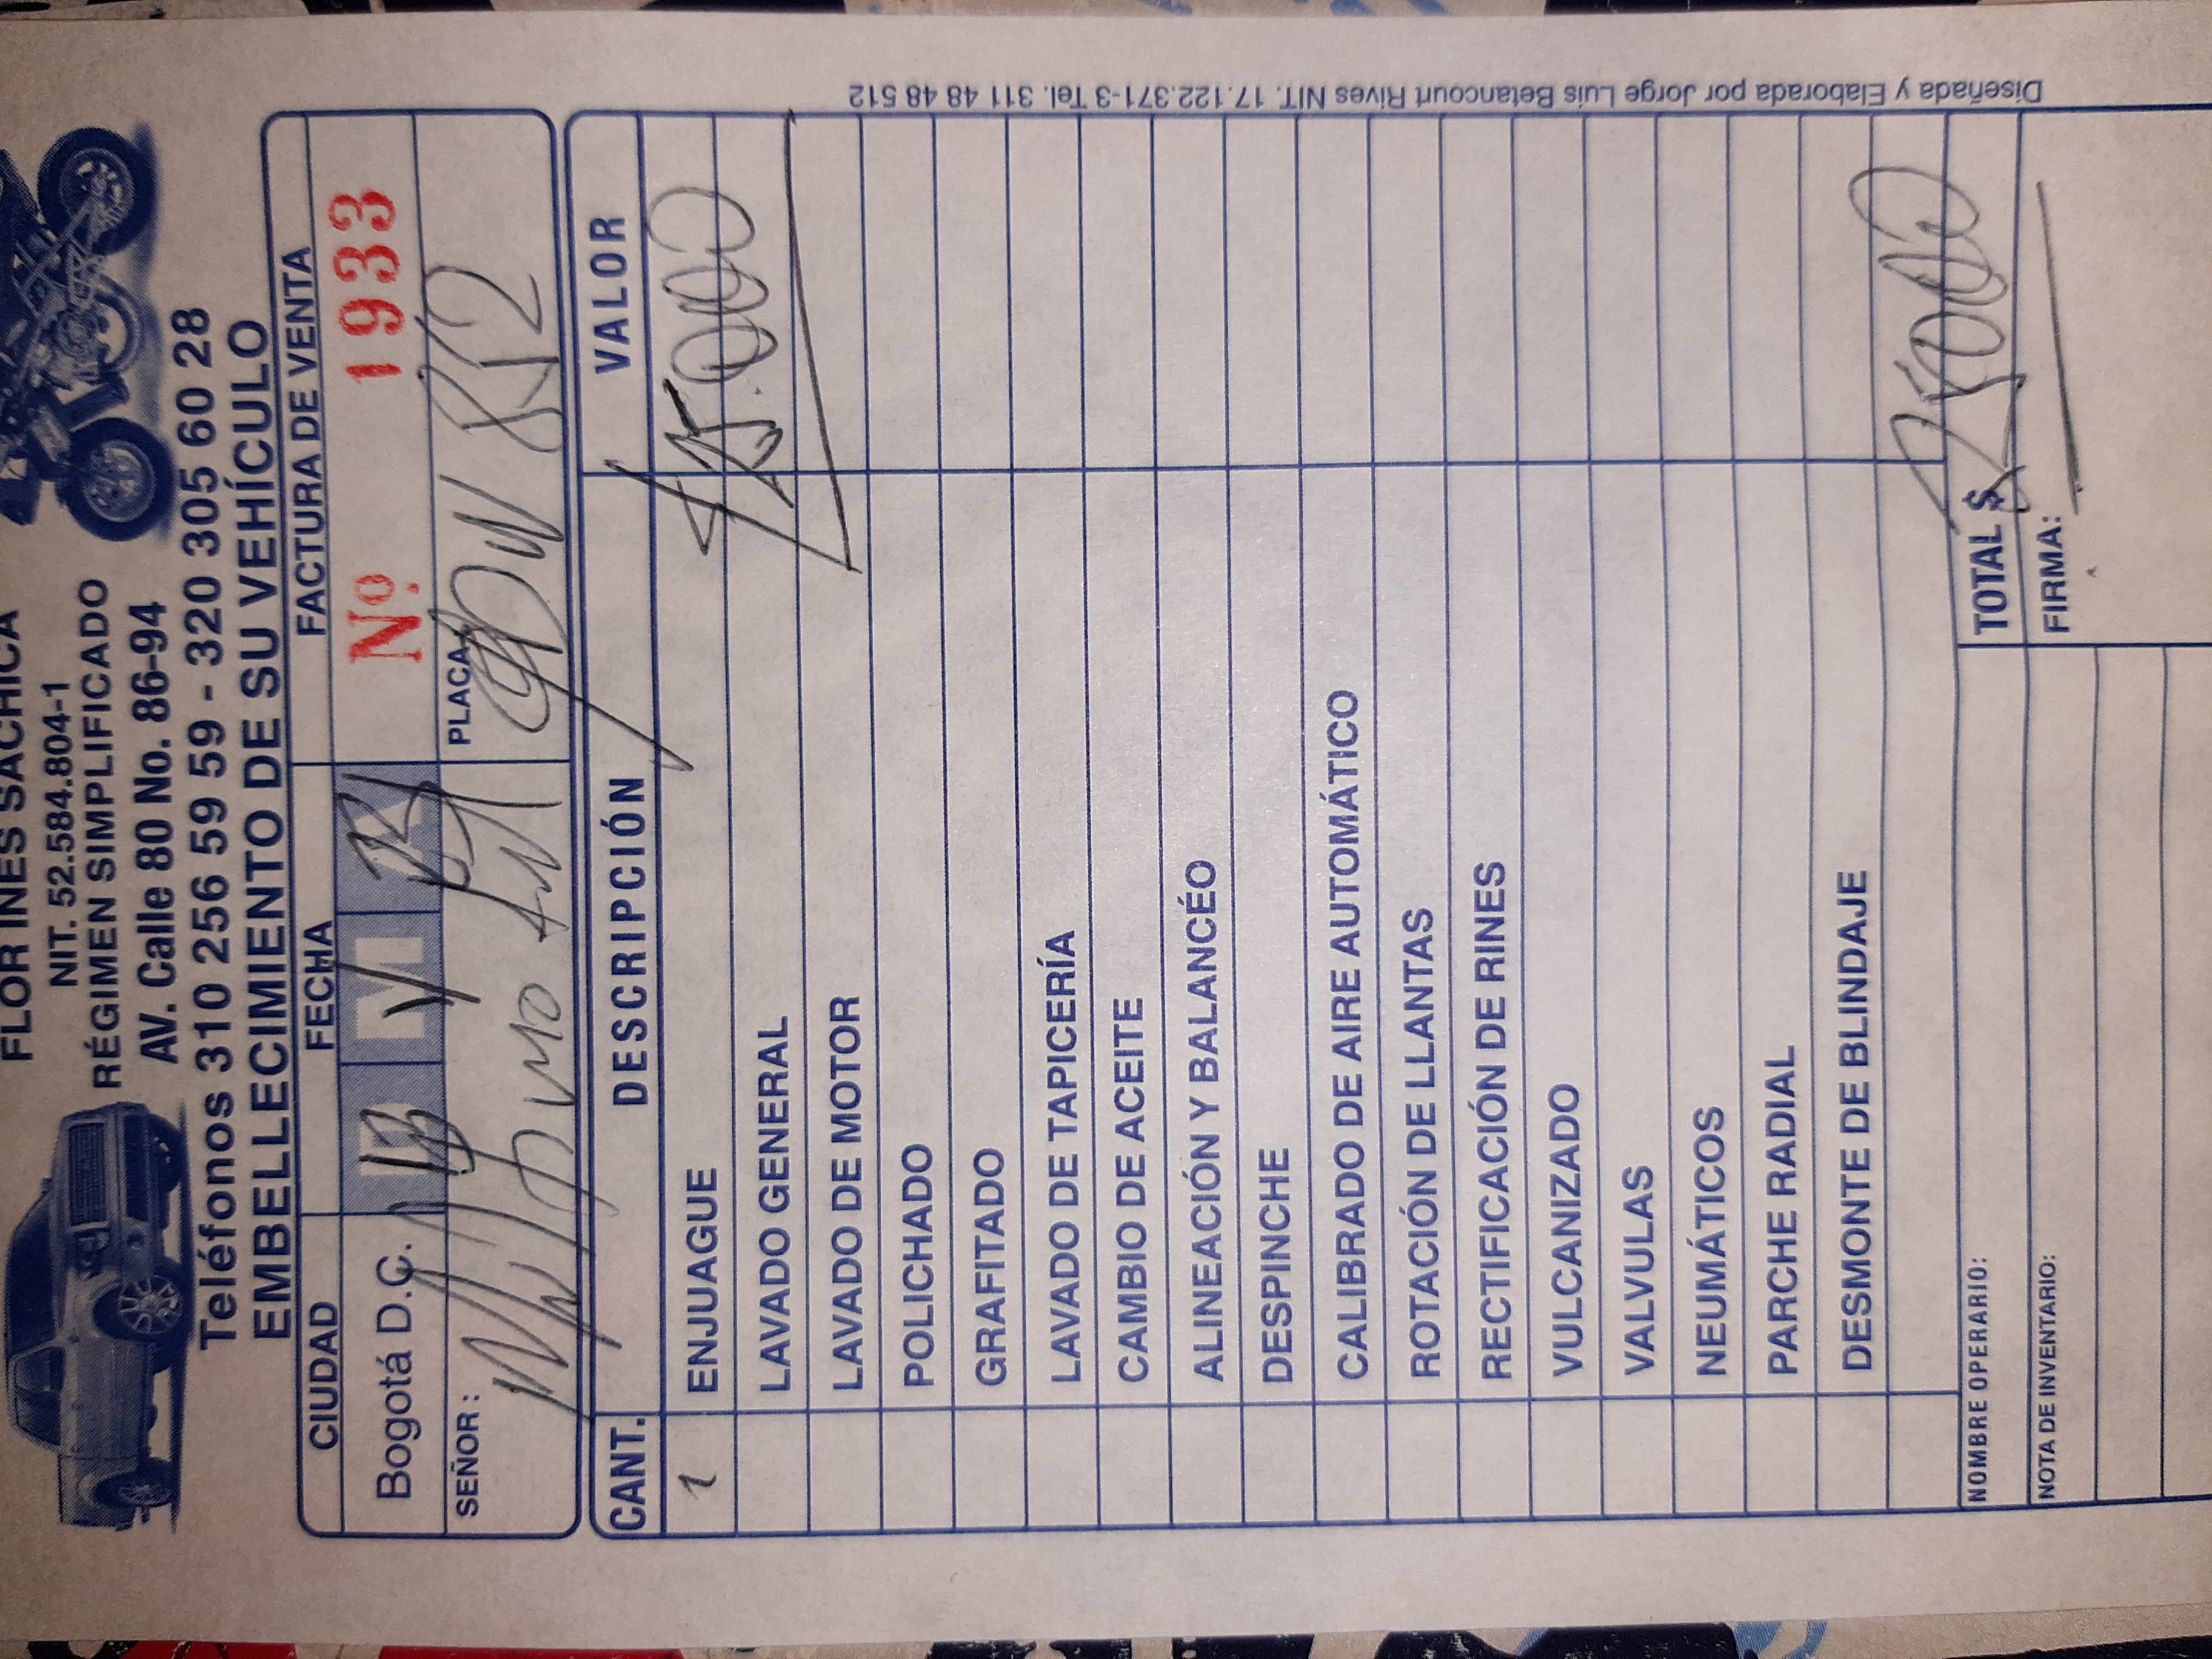 FLOR INES SACHICA
NIT. 52.584.804-1
RÉGIMEN SIMPLIFICADO
AV. Calle 80 No. 86-94
Teléfonos 310 256 59 59 - 320 305 60 28
EMBELLECIMIENTO DE SU VEHÍCULO
CIUDAD FECHA FACTURA DE VENTA
Bogotá D.C. D M A Nº 1933
SEÑOR: PLACA
CANT. DESCRIPCIÓN VALOR
1 ENJUAGUE
LAVADO GENERAL
LAVADO DE MOTOR
POLICHADO
GRAFITADO
LAVADO DE TAPICERÍA
CAMBIO DE ACEITE
ALINEACIÓN Y BALANCÉO
DESPINCHE
CALIBRADO DE AIRE AUTOMÁTICO
ROTACIÓN DE LLANTAS
RECTIFICACIÓN DE RINES
VULCANIZADO
VALVULAS
NEUMÁTICOS
PARCHE RADIAL
DESMONTE DE BLINDAJE
NOMBRE OPERARIO: TOTAL $
NOTA DE INVENTARIO: FIRMA:
Diseñada y Elaborada por Jorge Luis Betancourt Rives NIT. 17.122.371-3 Tel. 311 48 48 512